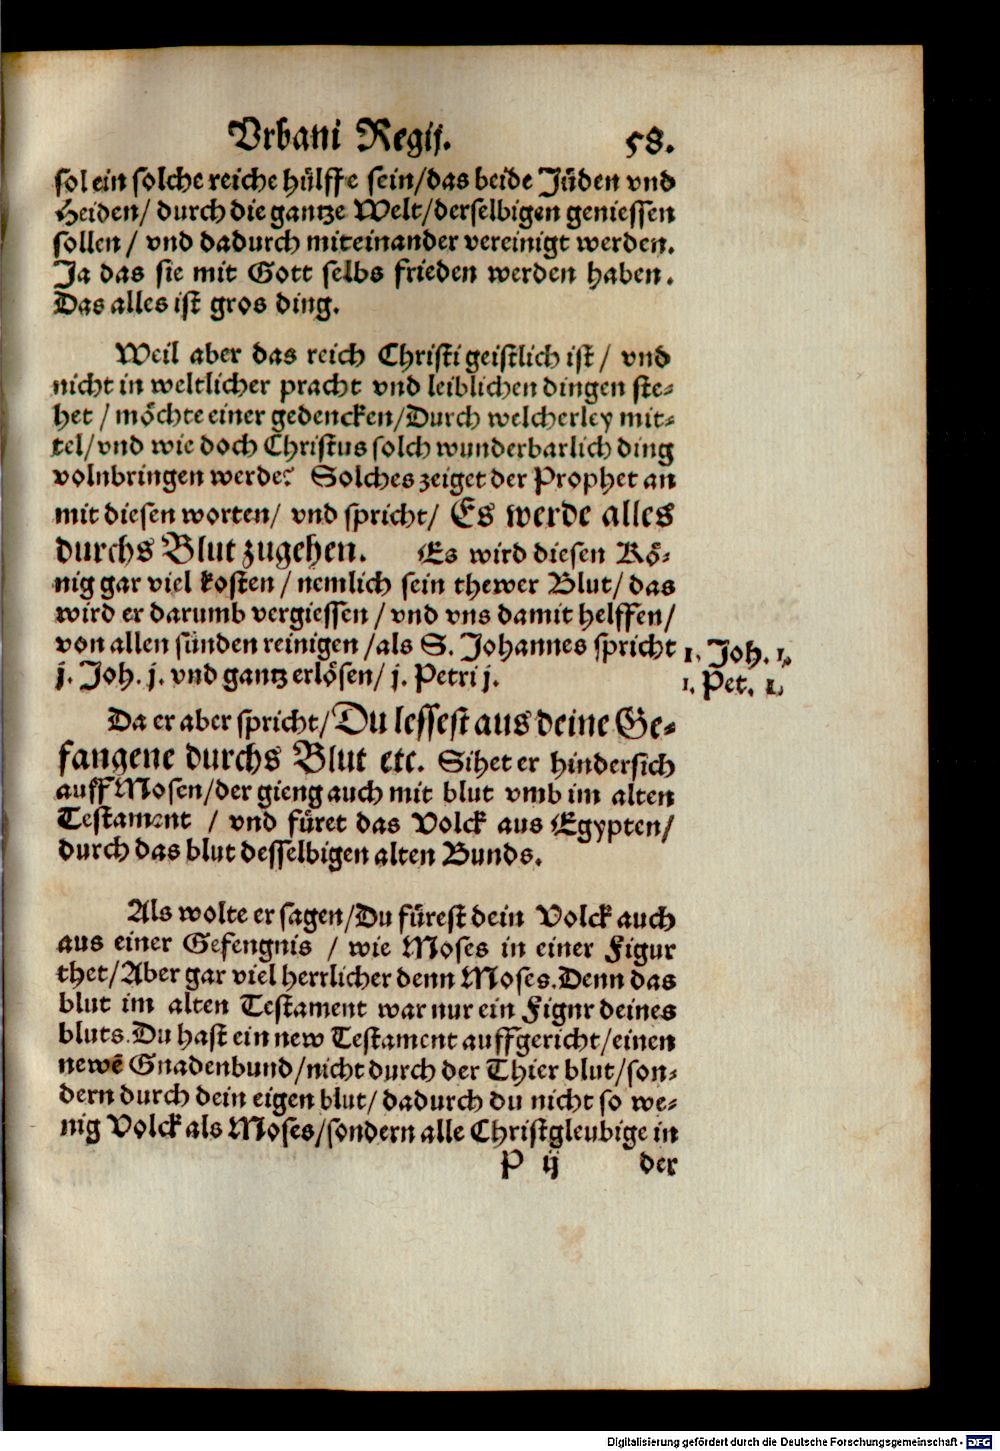 Vrbani Regij. 58.
sol ein solche reiche hülffe sein/das beide Jüden vnd
Heiden/ durch die gantze Welt/derselbigen geniessen
sollen / vnd dadurch miteinander vereinigt werden.
Ja das sie mit Gott selbs frieden werden haben.
Das alles ist gros ding.
Weil aber das reich Christi geistlich ist / vnd
nicht in weltlicher pracht vnd leiblichen dingen ste-
het / möchte einer gedencken/Durch welcherley mit-
tel/vnd wie doch Christus solch wunderbarlich ding
volnbringen werde? Solches zeiget der Prophet an
mit diesen worten/ vnd spricht/ Es werde alles
durchs Blut zugehen. Es wird diesen Kö-
nig gar viel kosten / nemlich sein thewer Blut/ das
wird er darumb vergiessen / vnd vns damit helffen/
von allen sünden reinigen /als S. Johannes spricht
j. Joh. j. vnd gantz erlösen/ j. Petri j.
1. Joh. 1.
1. Pet. 1.
Da er aber spricht/Du lessest aus deine Ge-
fangene durchs Blut etc. Sihet er hindersich
auff Mosen/der gieng auch mit blut vmb im alten
Testament / vnd füret das Volck aus Egypten/
durch das blut desselbigen alten Bunds.
Als wolte er sagen/Du fürest dein Volck auch
aus einer Gefengnis / wie Moses in einer Figur
thet/Aber gar viel herrlicher denn Moses.Denn das
blut im alten Testament war nur ein Figur deines
bluts.Du hast ein new Testament auffgericht/einen
newē Gnadenbund/nicht durch der Thier blut/son-
dern durch dein eigen blut/ dadurch du nicht so we-
nig Volck als Moses/sondern alle Christgleubige in
P ij der
Digitalisierung gefördert durch die Deutsche Forschungsgemeinschaft - DFG